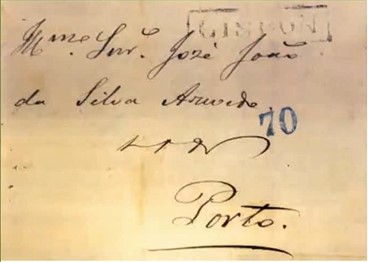 LISBON
Mme. Snr. José João
da Silva Azevedo
70
Porto.